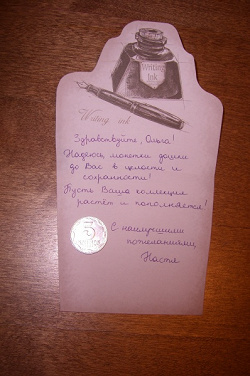 Writing
Ink
Writing ink
Здравствуйте, Ольга!
Надеюсь, монетки дошли
до Вас в целости и
сохранности!
Пусть Ваша коллекция
растёт и пополняется!
5
С наилучшими
пожеланиями,
Настя